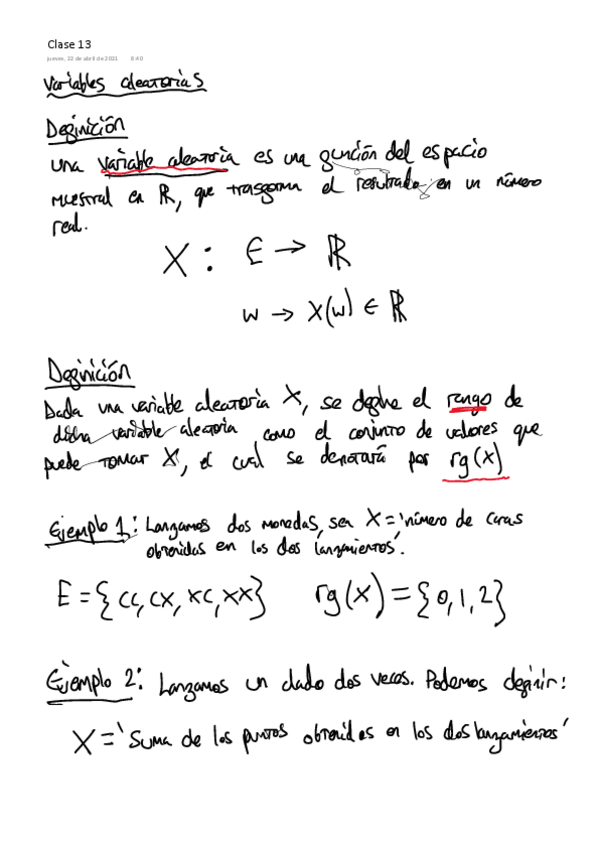 Clase 13
jueves, 22 de abril de 2021 8:40
Variables aleatorias
Definición
una variable aleatoria es una función del espacio
muestral en ℝ, que trasforma el resultado en un número
real.
X : E → ℝ
w → X(w) ∈ ℝ
Definición
Dada una variable aleatoria X, se define el rango de
dicha variable aleatoria como el conjunto de valores que
puede tomar X, el cual se denotará por rg(X)
Ejemplo 1: Lanzamos dos monedas, sea X='número de caras
obtenidas en los dos lanzamientos'.
E = {CC, CX, XC, XX} rg(X) = {0, 1, 2}
Ejemplo 2: Lanzamos un dado dos veces. Podemos definir:
X = 'Suma de los puntos obtenidos en los dos lanzamientos'